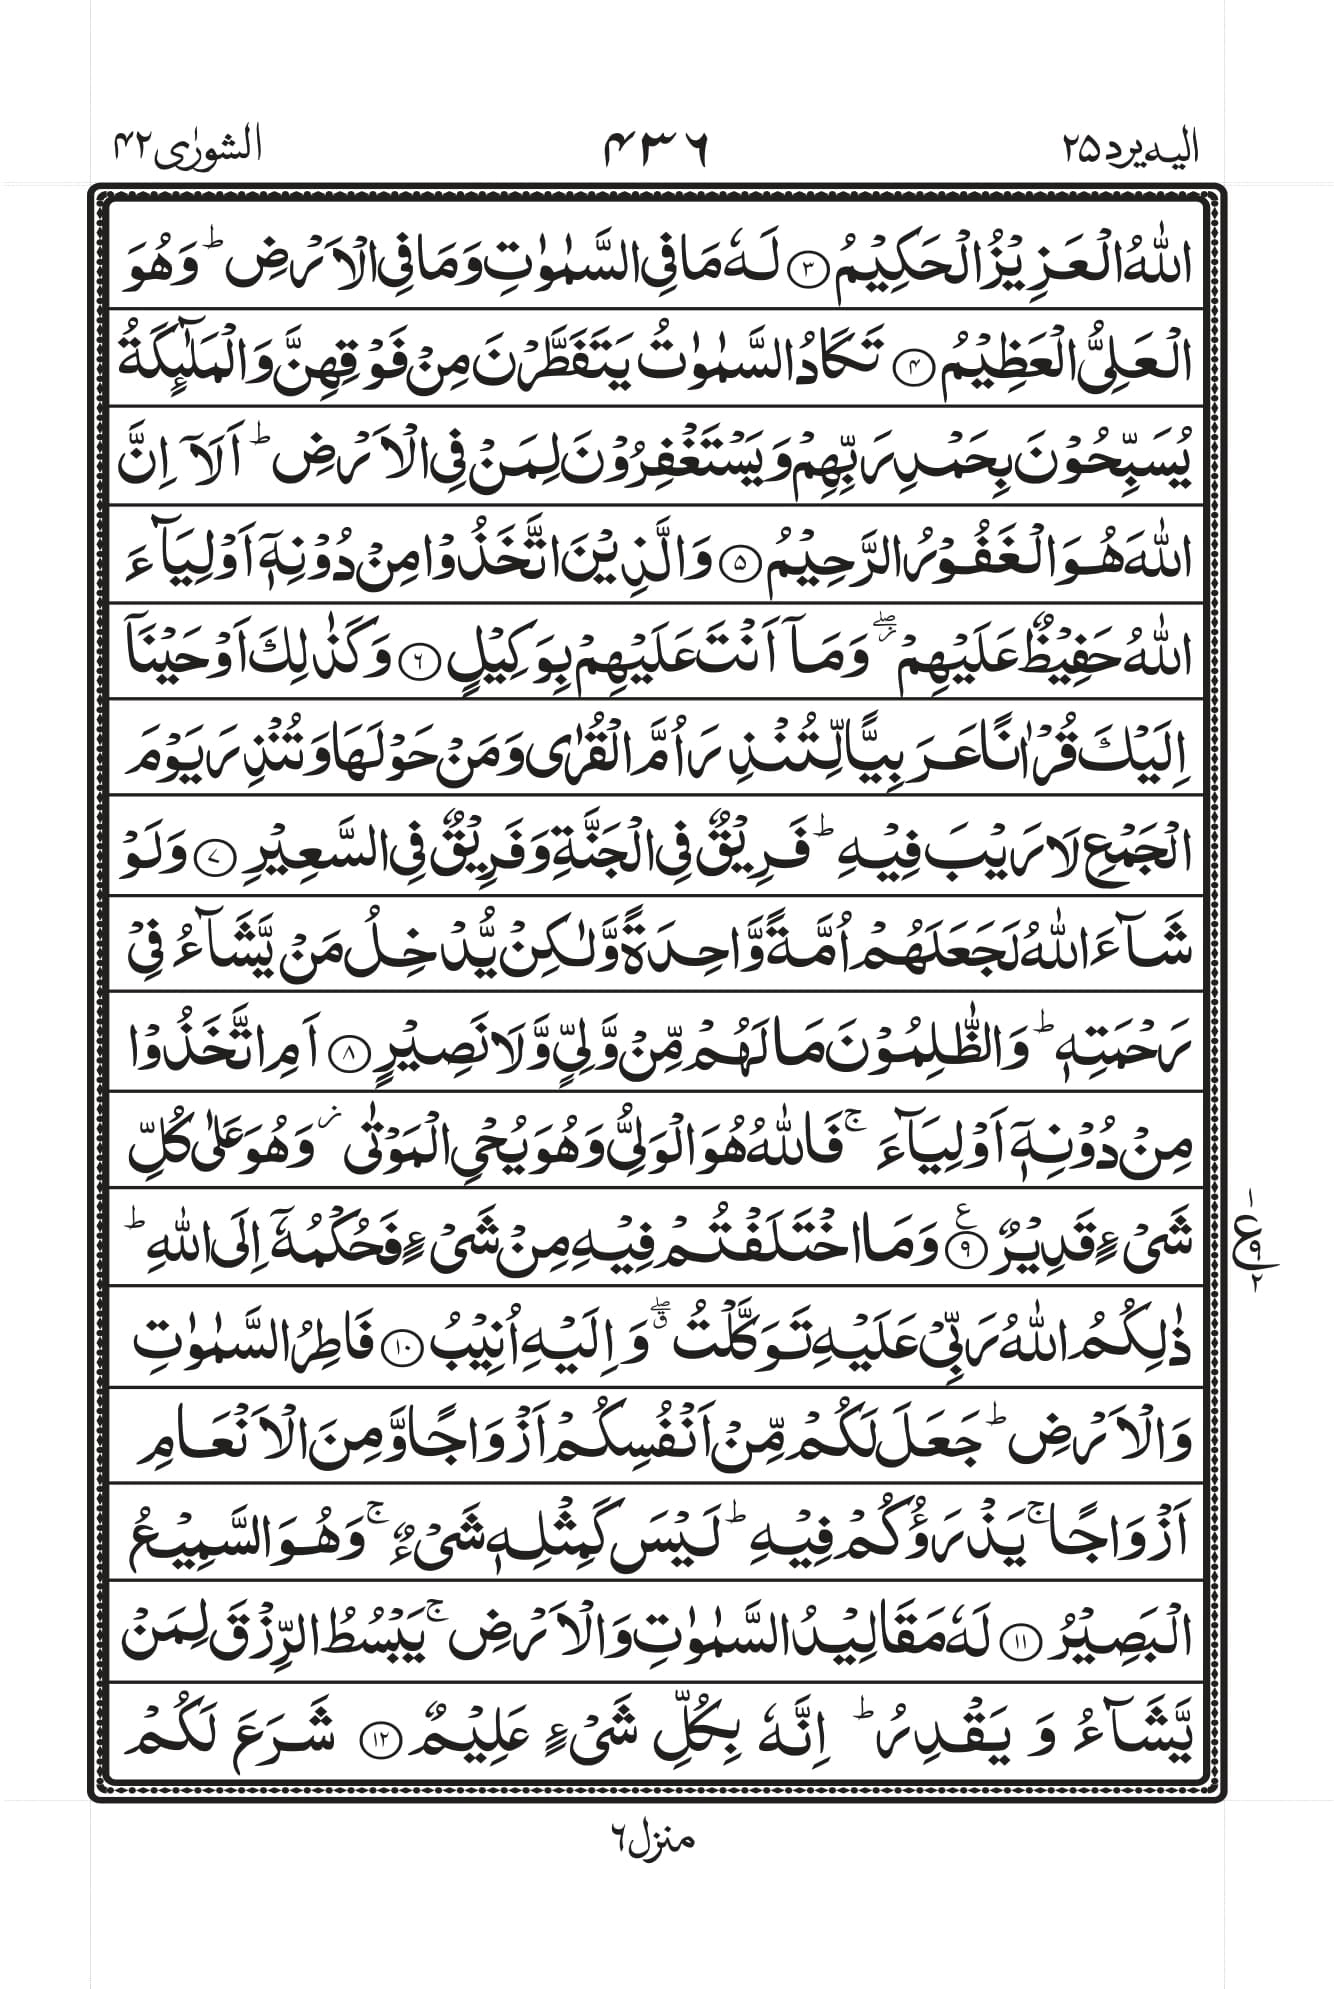 الیہ یرد ۲۵ ۴۳۶ الشورٰی ۴۲
اللّٰهُ الْعَزِیْزُ الْحَكِیْمُ ۝۳ لَهٗ مَا فِی السَّمٰوٰتِ وَمَا فِی الْاَرْضِ ؕ وَهُوَ
الْعَلِیُّ الْعَظِیْمُ ۝۴ تَكَادُ السَّمٰوٰتُ یَتَفَطَّرْنَ مِنْ فَوْقِهِنَّ وَالْمَلٰٓئِكَةُ
یُسَبِّحُوْنَ بِحَمْدِ رَبِّهِمْ وَیَسْتَغْفِرُوْنَ لِمَنْ فِی الْاَرْضِ ؕ اَلَاۤ اِنَّ
اللّٰهَ هُوَ الْغَفُوْرُ الرَّحِیْمُ ۝۵ وَالَّذِیْنَ اتَّخَذُوْا مِنْ دُوْنِهٖۤ اَوْلِیَآءَ
اللّٰهُ حَفِیْظٌ عَلَیْهِمْ ۖؗ وَمَاۤ اَنْتَ عَلَیْهِمْ بِوَكِیْلٍ ۝۶ وَكَذٰلِكَ اَوْحَیْنَاۤ
اِلَیْكَ قُرْاٰنًا عَرَبِیًّا لِّتُنْذِرَ اُمَّ الْقُرٰی وَمَنْ حَوْلَهَا وَتُنْذِرَ یَوْمَ
الْجَمْعِ لَا رَیْبَ فِیْهِ ؕ فَرِیْقٌ فِی الْجَنَّةِ وَفَرِیْقٌ فِی السَّعِیْرِ ۝۷ وَلَوْ
شَآءَ اللّٰهُ لَجَعَلَهُمْ اُمَّةً وَّاحِدَةً وَّلٰكِنْ یُّدْخِلُ مَنْ یَّشَآءُ فِیْ
رَحْمَتِهٖ ؕ وَالظّٰلِمُوْنَ مَا لَهُمْ مِّنْ وَّلِیٍّ وَّلَا نَصِیْرٍ ۝۸ اَمِ اتَّخَذُوْا
مِنْ دُوْنِهٖۤ اَوْلِیَآءَ ۚ فَاللّٰهُ هُوَ الْوَلِیُّ وَهُوَ یُحْیِ الْمَوْتٰی ؗ وَهُوَ عَلٰی كُلِّ
شَیْءٍ قَدِیْرٌ ۝۹ ع وَمَا اخْتَلَفْتُمْ فِیْهِ مِنْ شَیْءٍ فَحُكْمُهٗۤ اِلَی اللّٰهِ ؕ
۱ ع ۹ ۲
ذٰلِكُمُ اللّٰهُ رَبِّیْ عَلَیْهِ تَوَكَّلْتُ ۖۗ وَاِلَیْهِ اُنِیْبُ ۝۱۰ فَاطِرُ السَّمٰوٰتِ
وَالْاَرْضِ ؕ جَعَلَ لَكُمْ مِّنْ اَنْفُسِكُمْ اَزْوَاجًا وَّمِنَ الْاَنْعَامِ
اَزْوَاجًا ۚ یَذْرَؤُكُمْ فِیْهِ ؕ لَیْسَ كَمِثْلِهٖ شَیْءٌ ۚ وَهُوَ السَّمِیْعُ
الْبَصِیْرُ ۝۱۱ لَهٗ مَقَالِیْدُ السَّمٰوٰتِ وَالْاَرْضِ ۚ یَبْسُطُ الرِّزْقَ لِمَنْ
یَّشَآءُ وَیَقْدِرُ ؕ اِنَّهٗ بِكُلِّ شَیْءٍ عَلِیْمٌ ۝۱۲ شَرَعَ لَكُمْ
منزل ۶